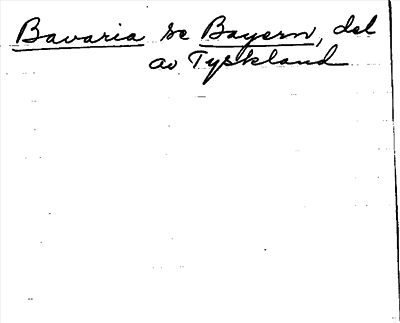 Bavaria se Bayern, del
av Tyskland